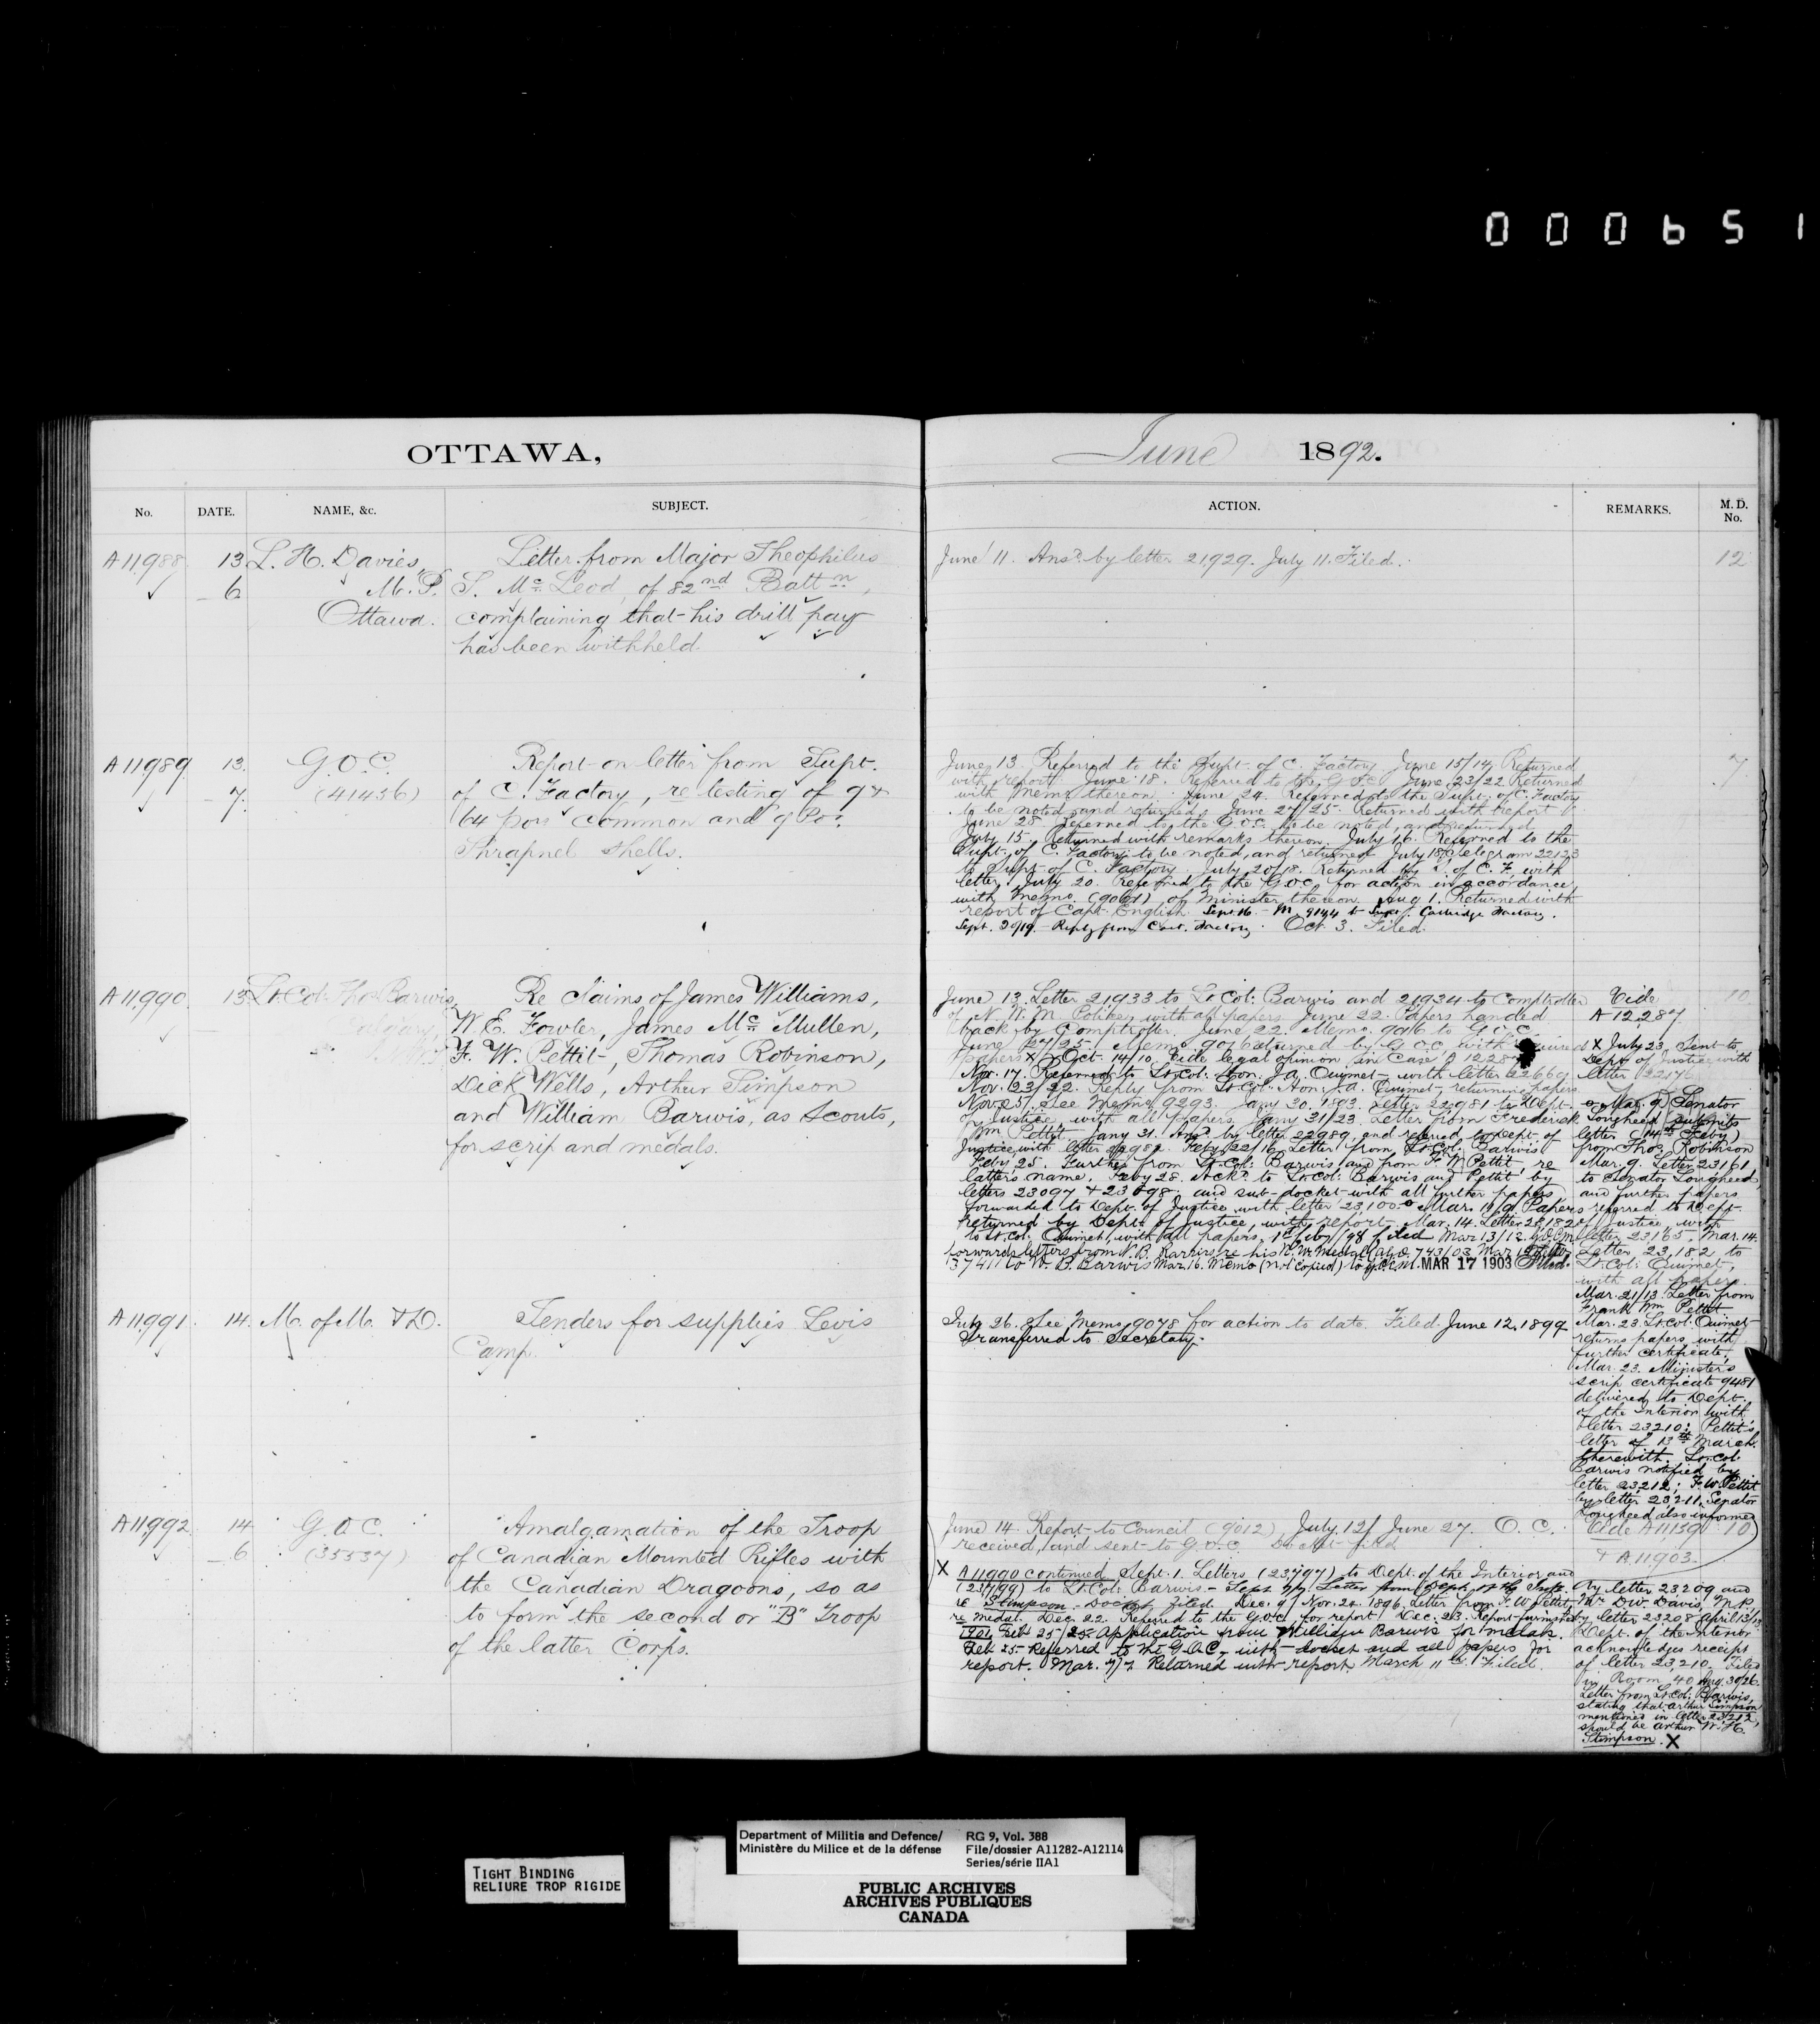 000651
OTTAWA,
June 1892.
No. DATE. NAME, &c. SUBJECT. ACTION. REMARKS. M. D. No.
A 11988 13 L. H. Davies,
6 M. P.
Ottawa.
Letter from Major Theophilus
S. Mc Leod, of 82nd Battn,
complaining that his drill pay
has been withheld.
June 11. Ansd by letter 21929. July 11. Filed.
12
A 11989 13. G.O.C.
7. (41436)
Report on letter from Supt.
of C. Factory, re testing of 9 &
64 pors common and 9 Por.
Shrapnel shells.
June 13. Referred to the Supt. of C. Factory June 15/14, Returned
with report. June 18. Referred to the G.O.C. June 23/22 Returned
with memo thereon. June 24. Referred to the Supt. of C. Factory
to be noted and returned. June 27/25. Returned with report
June 28. Referred to the G.O.C. to be noted, and returned.
July 15. Returned with remarks thereon. July 16. Referred to the
Supt. of C. Factory to be noted, and returned July 18, telegram 22123
to Supt. of C. Factory. July 20/18. Returned by of C. F. with
letter. July 20. Referred to the G.O.C. for action in accordance
with memo. (9061) of Minister thereon. Aug 1. Returned with
report of Capt. English. Sept. 16. - M. 9144 to Supt. Cartridge Factory.
Sept. 20/19. - Reply from Cart. Factory. Oct. 3. Filed.
7
A 11990 13 Lt. Col. Thos Barwis,
Calgary,
Re claims of James Williams,
W. E. Fowler, James Mc Mullen,
F. W. Pettit, Thomas Robinson,
Dick Wells, Arthur Simpson
and William Barwis, as Scouts,
for scrip and medals.
June 13. Letter 21933 to Lt. Col: Barwis and 21934 to Comptroller
of N. W. M. Police, with all papers. June 22. Papers handed
back by Comptroller. June 22. Memo. 9016 to G.O.C.
June 27/25. Memo. 9016 returned by G.O.C. with
papers X Oct. 14/10. Vide legal opinion in Case A 1228
Nov. 17. Referred to Lt. Col: Hon: J. A. Ouimet with letter 22669
Nov. 23/22. Reply from Lt. Col: Hon: J. A. Ouimet returning papers
Nov. 25. See Memo 9293. Jany 30. 1893. Letter 22981 to Dept.
of Justice with all papers. Jany 31/23. Letter from Frederick
Wm Pettit. Jany 31. Ansd by letter 22989, and referred to Dept. of
Justice with letter Feby 22/16 Letter from Lt. Col: Barwis
Feby 25. Further from Lt. Col: Barwis and from F. W. Pettit, re
latters name. Feby 28. Ackd to Lt. Col: Barwis and Pettit by
letters 23097 & 23098. and sub-docket with all further papers
forwarded to Dept. of Justice with letter 23100. Mar. 10/9. Papers
returned by Dept. of Justice, with report. Mar. 14. Letter 23,182
to Lt. Col: Ouimet, with all papers. 1st Feby/98 filed Mar 13/12.
forwards letters from W. B. Barwis re his N.W. Medal 743/03 Mar
37411 to W. B. Barwis Mar. 16. Memo (not copied) to MAR 17 1903 Filed.
Vide
A 12,287
X July 23, Sent to
Dept. of Justice with
letter 22176
Mar. 9, Senator
Lougheed submits
letter (14th Feby)
from Thos. Robinson
Mar. 9. Letter 23161
to Senator Lougheed,
and further papers
referred to Dept.
of Justice with
letter 23165. Mar. 14.
Letter 23,182 to
Lt. Col: Ouimet,
with all papers.
Mar. 21/13. Letter from
Frank Wm Pettit.
Mar. 23. Lt. Col: Ouimet
returns papers with
further certificate.
Mar. 23. Minister's
scrip certificate 9481
delivered to Dept.
of the Interior with
letter 23210; Pettit's
letter of 13th March
therewith. Lt. Col:
Barwis notified by
letter 23,212; F. W. Pettit
by letter 23,211. Senator
Lougheed also informed
10
A 11991. 14. M. of M. & D.
Tenders for supplies Levis
Camp.
July 26. See Memo 9078 for action to date. Filed. June 12, 1899
Transferred to Secretary.
A 11992 14 G.O.C.
6 (35537)
Amalgamation of the Troop
of Canadian Mounted Rifles with
the Canadian Dragoons, so as
to form the second or "B" Troop
of the latter Corps.
June 14. Report to Council (9012), July 12/June 27. O. C.
received, and sent to G.O.C. Docket filed
Vide A 11139
& A 11903.
10
X A 11990 continued. Sept. 1. Letters (23797) to Dept. of the Interior and
(23799) to Lt. Col: Barwis. - Sept. Letter from Dept. of the Int.
re Stimpson - Docket filed. Dec. 9/Nov. 20. 1896. Letter from F. W. Pettit,
re medal. Dec. 22. Referred to the G.O.C. for report. Dec. 23. Report furnished
1901 Feb 25/25 Application from William Barwis for medals.
Feb 25. Referred to the G.O.C. with docket and all papers for
report. Mar. 7/7. Returned with report March 11th. Filed.
by letter 23209 and
Mr. D. W. Davis, M.P.
by letter 23208 April 13/
Dept. of the Interior
acknowledges receipt
of letter 23,210. Filed
in Room 40 Aug. 30/26.
Letter from Lt. Col: Barwis
stating that Arthur Simpson
mentioned in letter 23212,
should be Arthur W. H.
Stimpson. X
TIGHT BINDING
RELIURE TROP RIGIDE
Department of Militia and Defence/
Ministère du Milice et de la défense
RG 9, Vol. 388
File/dossier A11282-A12114
Series/série IIA1
PUBLIC ARCHIVES
ARCHIVES PUBLIQUES
CANADA